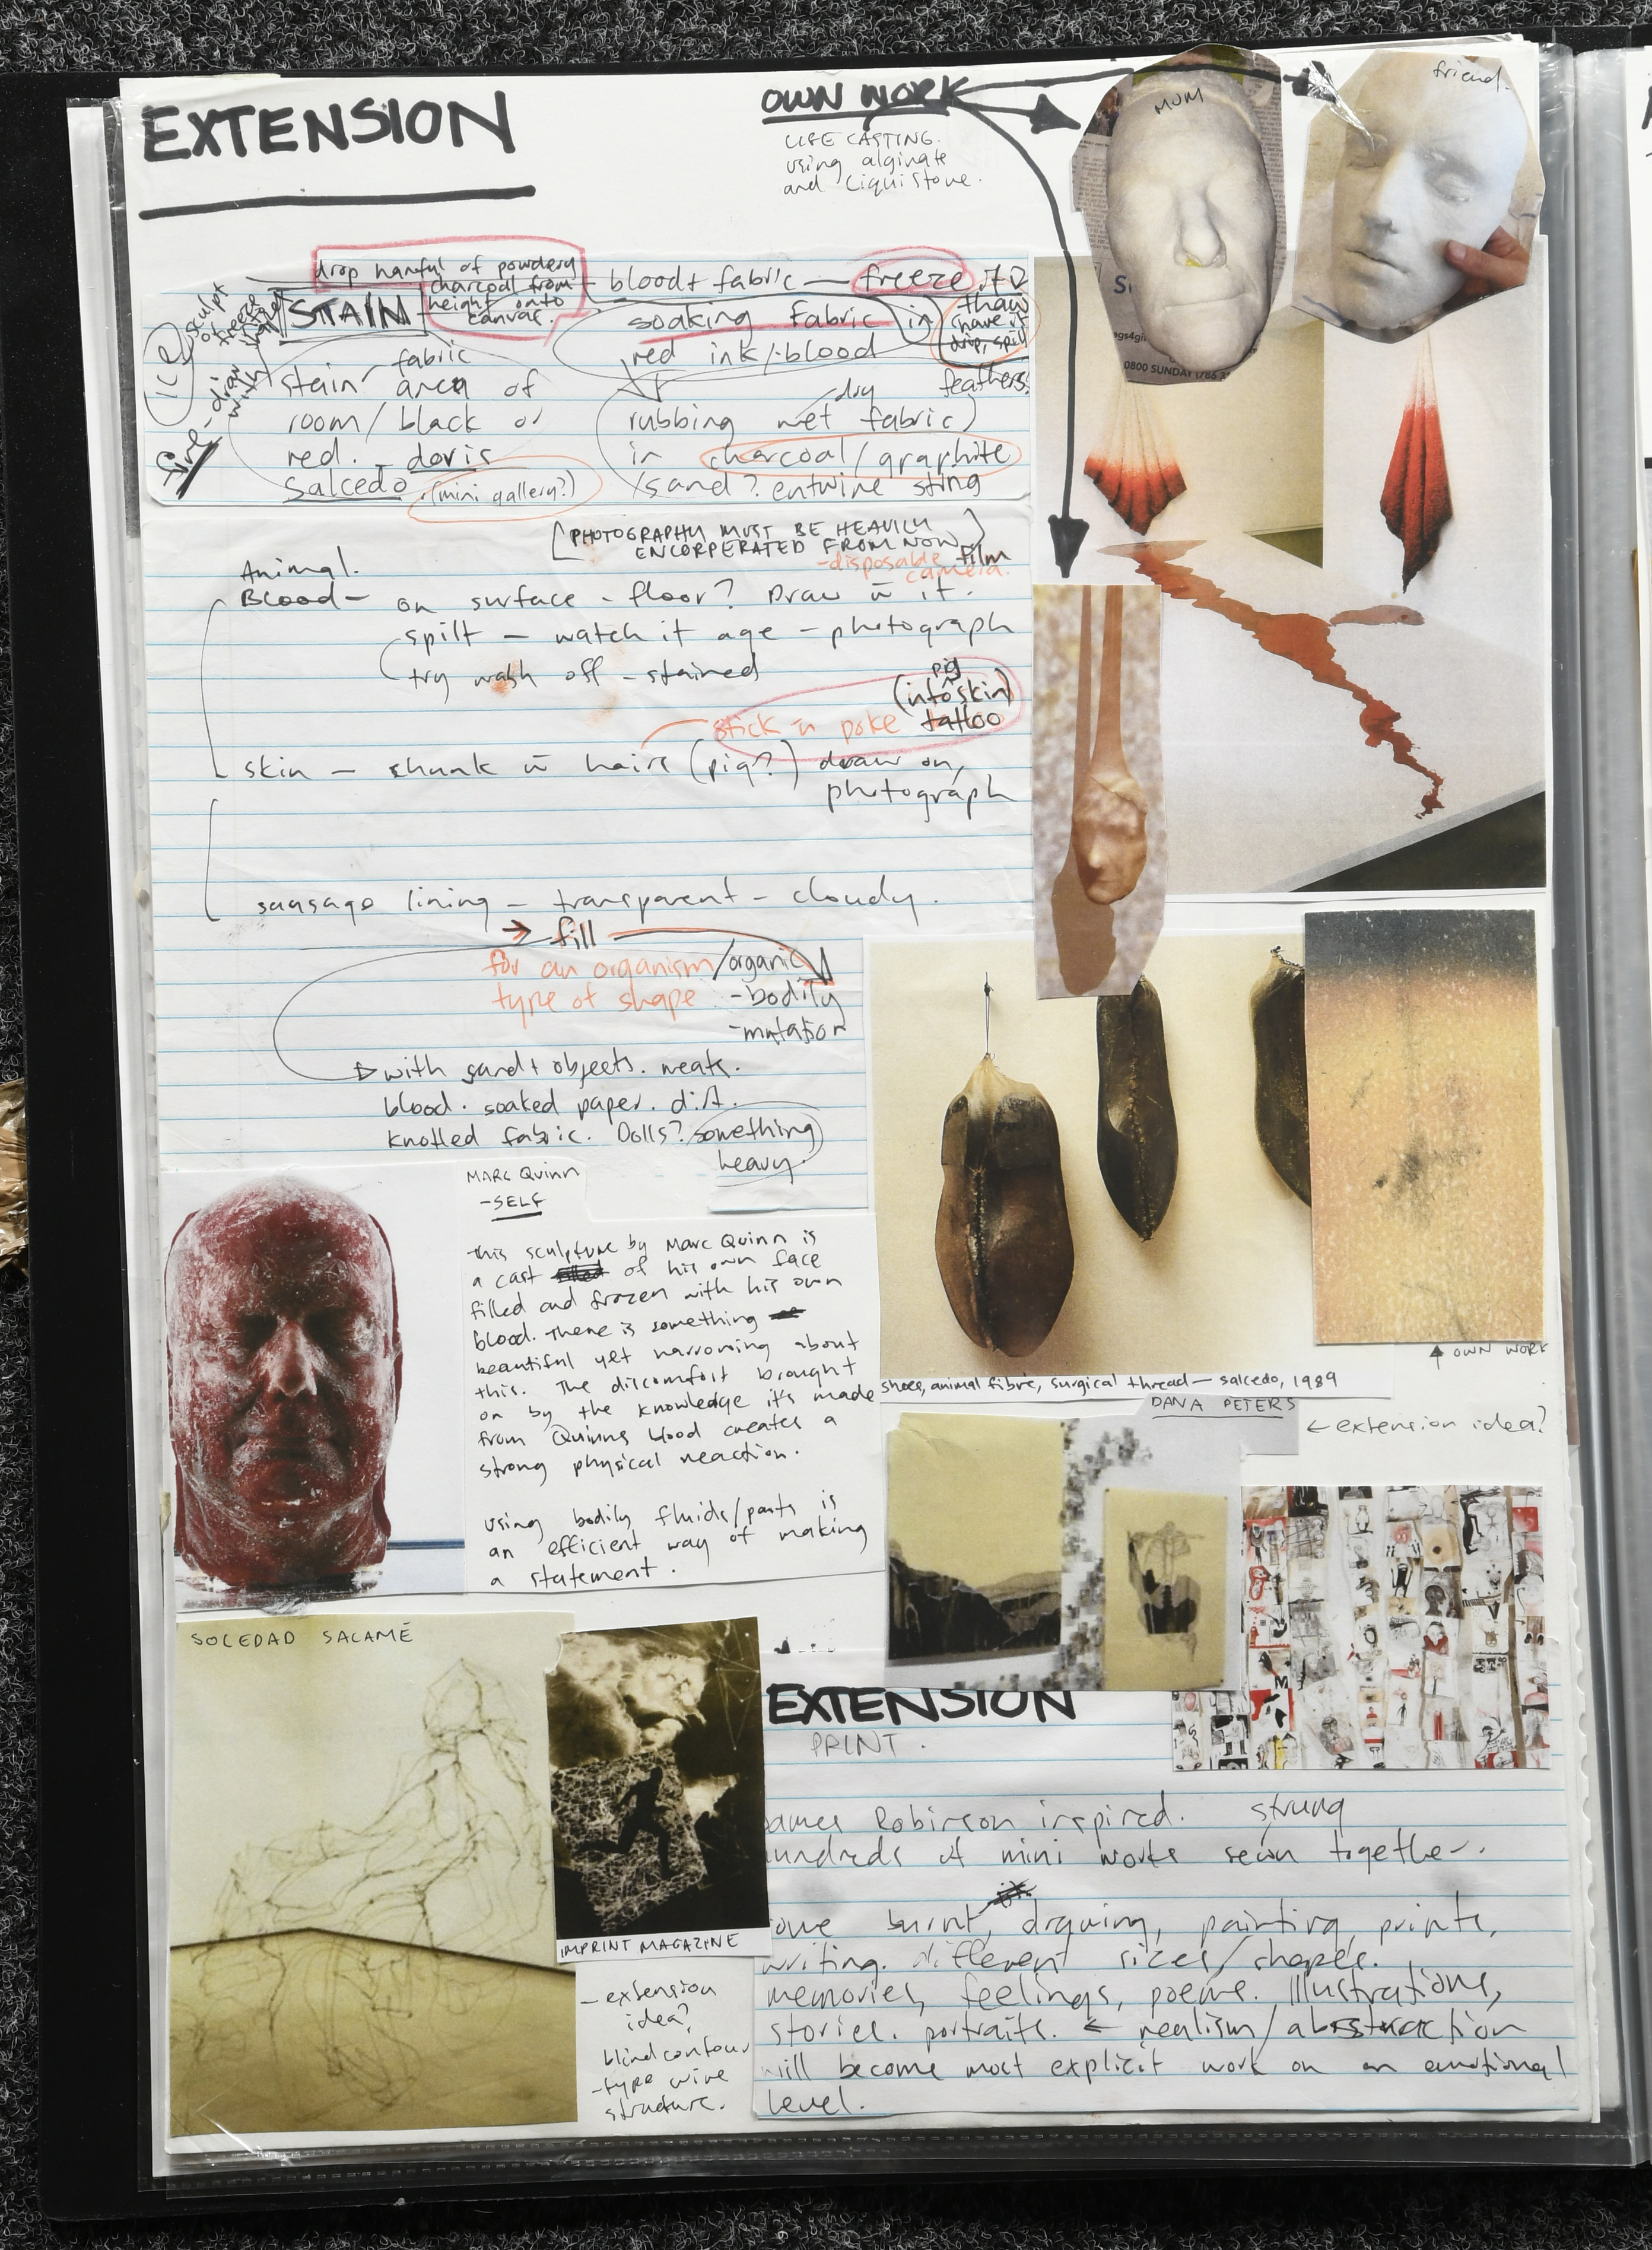 EXTENSION
OWN WORK
LIFE CASTING.
using alginate
and liquistone.
MUM
friend.
0800 SUNDAY
drop handful of powdery
charcoal from
height onto
canvas.
STAIN
ICE
sculpt
fire
draw
with
fabric
stain area of
room/black or
red. - doris
Salcedo. (mini gallery?)
blood + fabric — freeze
thaw
soaking Fabric in
red ink/blood
feathers
dry
rubbing wet fabric
in charcoal/graphite
sand? entwine sting
[PHOTOGRAPHY MUST BE HEAVILY
ENCORPERATED FROM NOW]
-disposable film
camera.
Animal.
Blood - on surface - floor? Draw w it.
spilt - watch it age - photograph
try wash off - stained
pig
(into skin)
stick n poke tattoo
skin - chunk w hairs (pig?) draw on,
photograph
sausage lining - transparent - cloudy.
→ fill
for an organism/organic
type of shape -bodily
-mutation
with sand + objects. meats.
blood. soaked paper. dirt.
knotted fabric. Dolls? something
heavy.
MARC Quinn
-SELF
this sculpture by Marc Quinn is
a cast of his own face
filled and frozen with his own
blood. There is something
beautiful yet harrowing about
this. The discomfort brought
on by the knowledge it's made
from Quinns blood creates a
strong physical reaction.
using bodily fluids/parts is
an efficient way of making
a statement.
↑ OWN WORK
shoes, animal fibre, surgical thread — salcedo, 1989
DANA PETERS
← extension idea?
SOLEDAD SALAMÉ
IMPRINT MAGAZINE
- extension
idea?
blind contour
-type wire
structure.
EXTENSION
PRINT.
James Robinson inspired. strung
hundreds of mini works sewn together.
some burnt, drawing, painting, prints,
writing. different sizes/shapes.
memories, feelings, poems. Illustrations,
stories. portraits. ← realism/abstraction
will become most explicit work on an emotional
level.